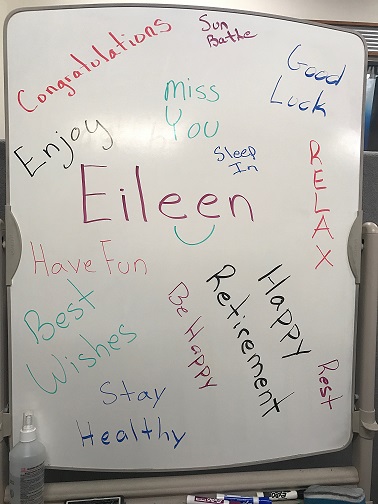 Congratulations
Sun
Bathe
Good
Luck
miss
You
Enjoy
Sleep
In
RELAX
Eileen
Have Fun
Best
Wishes
Be Happy
Happy
Retirement
Rest
Stay
Healthy
EXPO